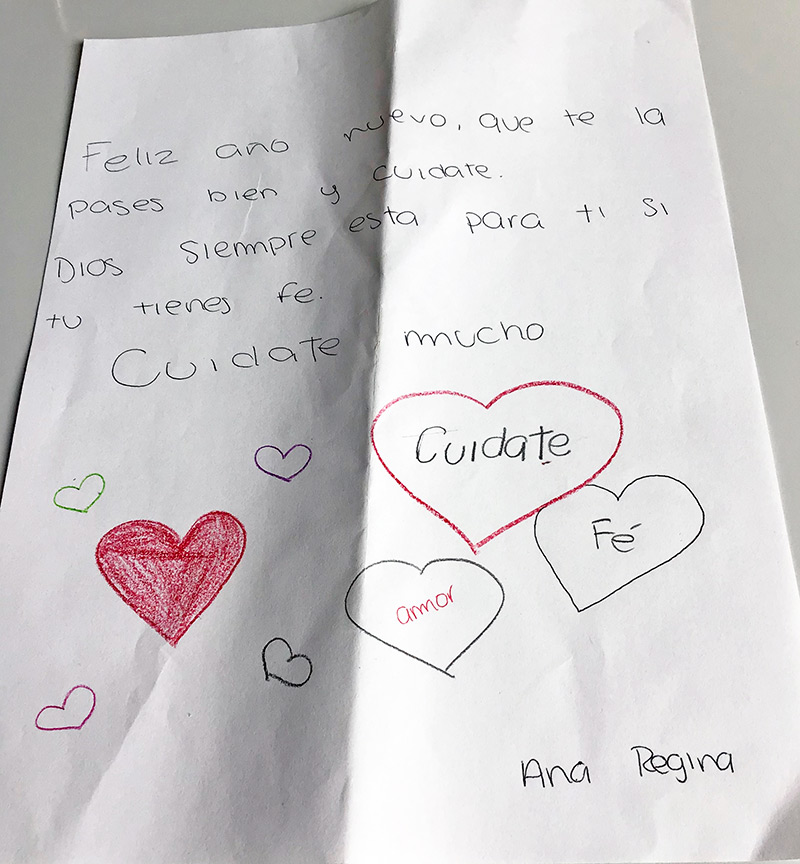 Feliz año nuevo, que te la
pases bien y cuidate.
Dios siempre esta para ti si
tu tienes fe.
Cuidate mucho
Cuidate
Fé
amor
Ana Regina